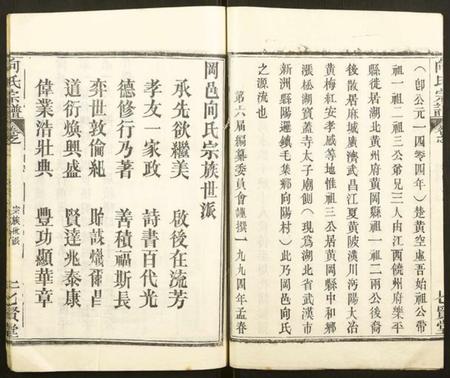 向氏宗譜
七賢堂
(即公元一四零四年)楚黃空虛吾始祖公帶
祖一祖二祖三公弟兄三人由江西饒州府樂平
縣徙居湖北黃州府黃岡縣祖一祖二兩公後裔
後散居麻城廣濟武昌江夏黃陂漢川沔陽大冶
黃梅紅安孝感等地惟祖三公居黃岡縣中和鄉
漲極湖寶蓋寺太子廟側(現為湖北省武漢市
新洲縣陽邏鎮毛集鄉向陽村)此乃岡邑向氏
之源流也
第六屆編纂委員會謹撰一九九四年孟春
岡邑向氏宗族世派
承先欲繼美 啟後在流芳
孝友一家政 詩書百代光
德修行乃著 善積福斯長
奕世敦倫紀
道衍煥興盛 賢達兆泰康
偉業浩壯典 豐功顯華章
向氏宗譜
卷之
宗族世派
七賢堂